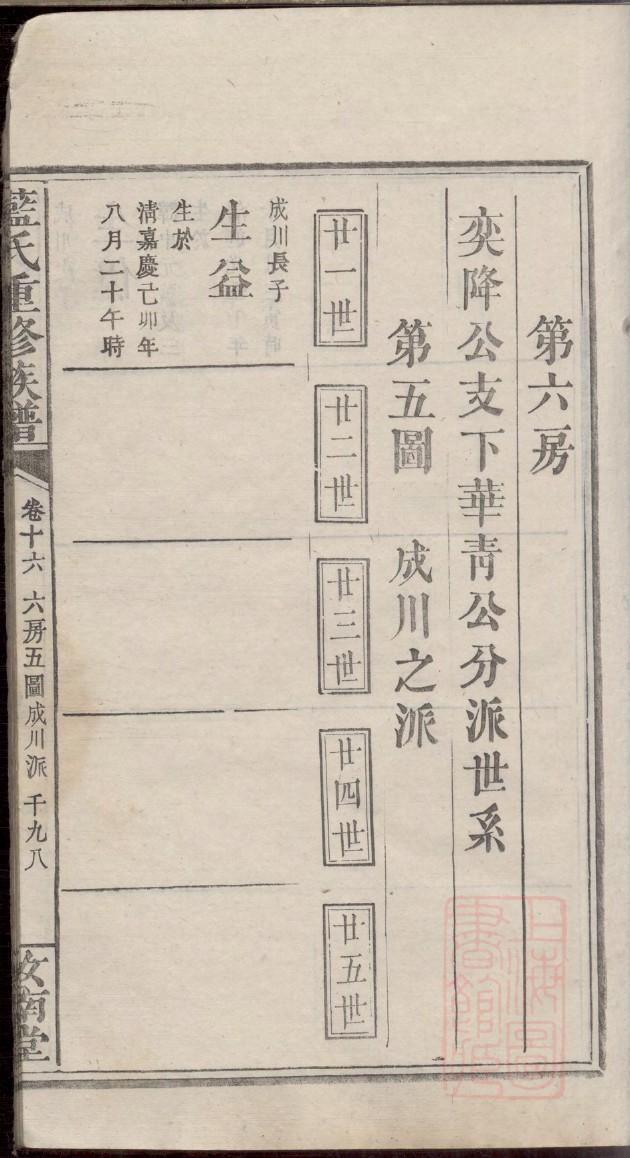 第六房
奕降公支下華青公分派世系
第五圖 成川之派
廿一世
廿二世
廿三世
廿四世
廿五世
成川長子
生益
生於
清嘉慶己卯年
八月二十午時
藍氏重修族譜
卷十六 六房五圖成川派 千九八
汝南堂
上海圖
書館藏